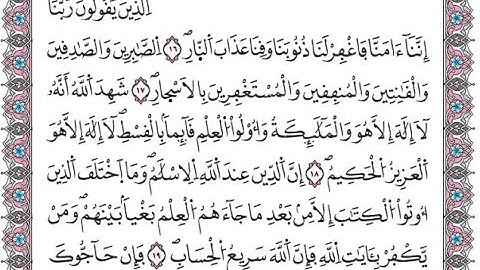 اَلذِينَ يَقُولُونَ رَبَّنَا
إِنَّنَا ءَامَنَّا فَاغْفِرْ لَنَا ذُنُوبَنَا وَقِنَا عَذَابَ اَلنّ۪ارِۖ ١٦ اَلصَّٰبِرِينَ وَالصَّٰدِقِينَ
وَالْقَٰنِتِينَ وَالْمُنفِقِينَ وَالْمُسْتَغْفِرِينَ بِالَاسْح۪ارِۖ ١٧ شَهِدَ اَللَّهُ أَنَّهُۥ
لَآ إِلَٰهَ إِلَّا هُوَ وَالْمَلَٰٓئِكَةُ وَأُوْلُواْ اُلْعِلْمِ قَآئِماَۢ بِالْقِسْطِۖ لَآ إِلَٰهَ إِلَّا هُوَ
اَلْعَزِيزُ اُلْحَكِيمُۖ ١٨ إِنَّ اَلدِّينَ عِندَ اَللَّهِ اِلِاسْلَٰمُۖ وَمَا اَخْتَلَفَ اَلذِينَ
أُوتُواْ اُلْكِتَٰبَ إِلَّا مِنۢ بَعْدِ مَا جَآءَهُمُ اُلْعِلْمُ بَغْياَۢ بَيْنَهُمْۖ وَمَنْ
يَّكْفُرْ بِـَٔايَٰتِ اِللَّهِ فَإِنَّ اَللَّهَ سَرِيعُ اُلْحِسَابِۖ ١٩ فَإِنْ حَآجُّوكَ